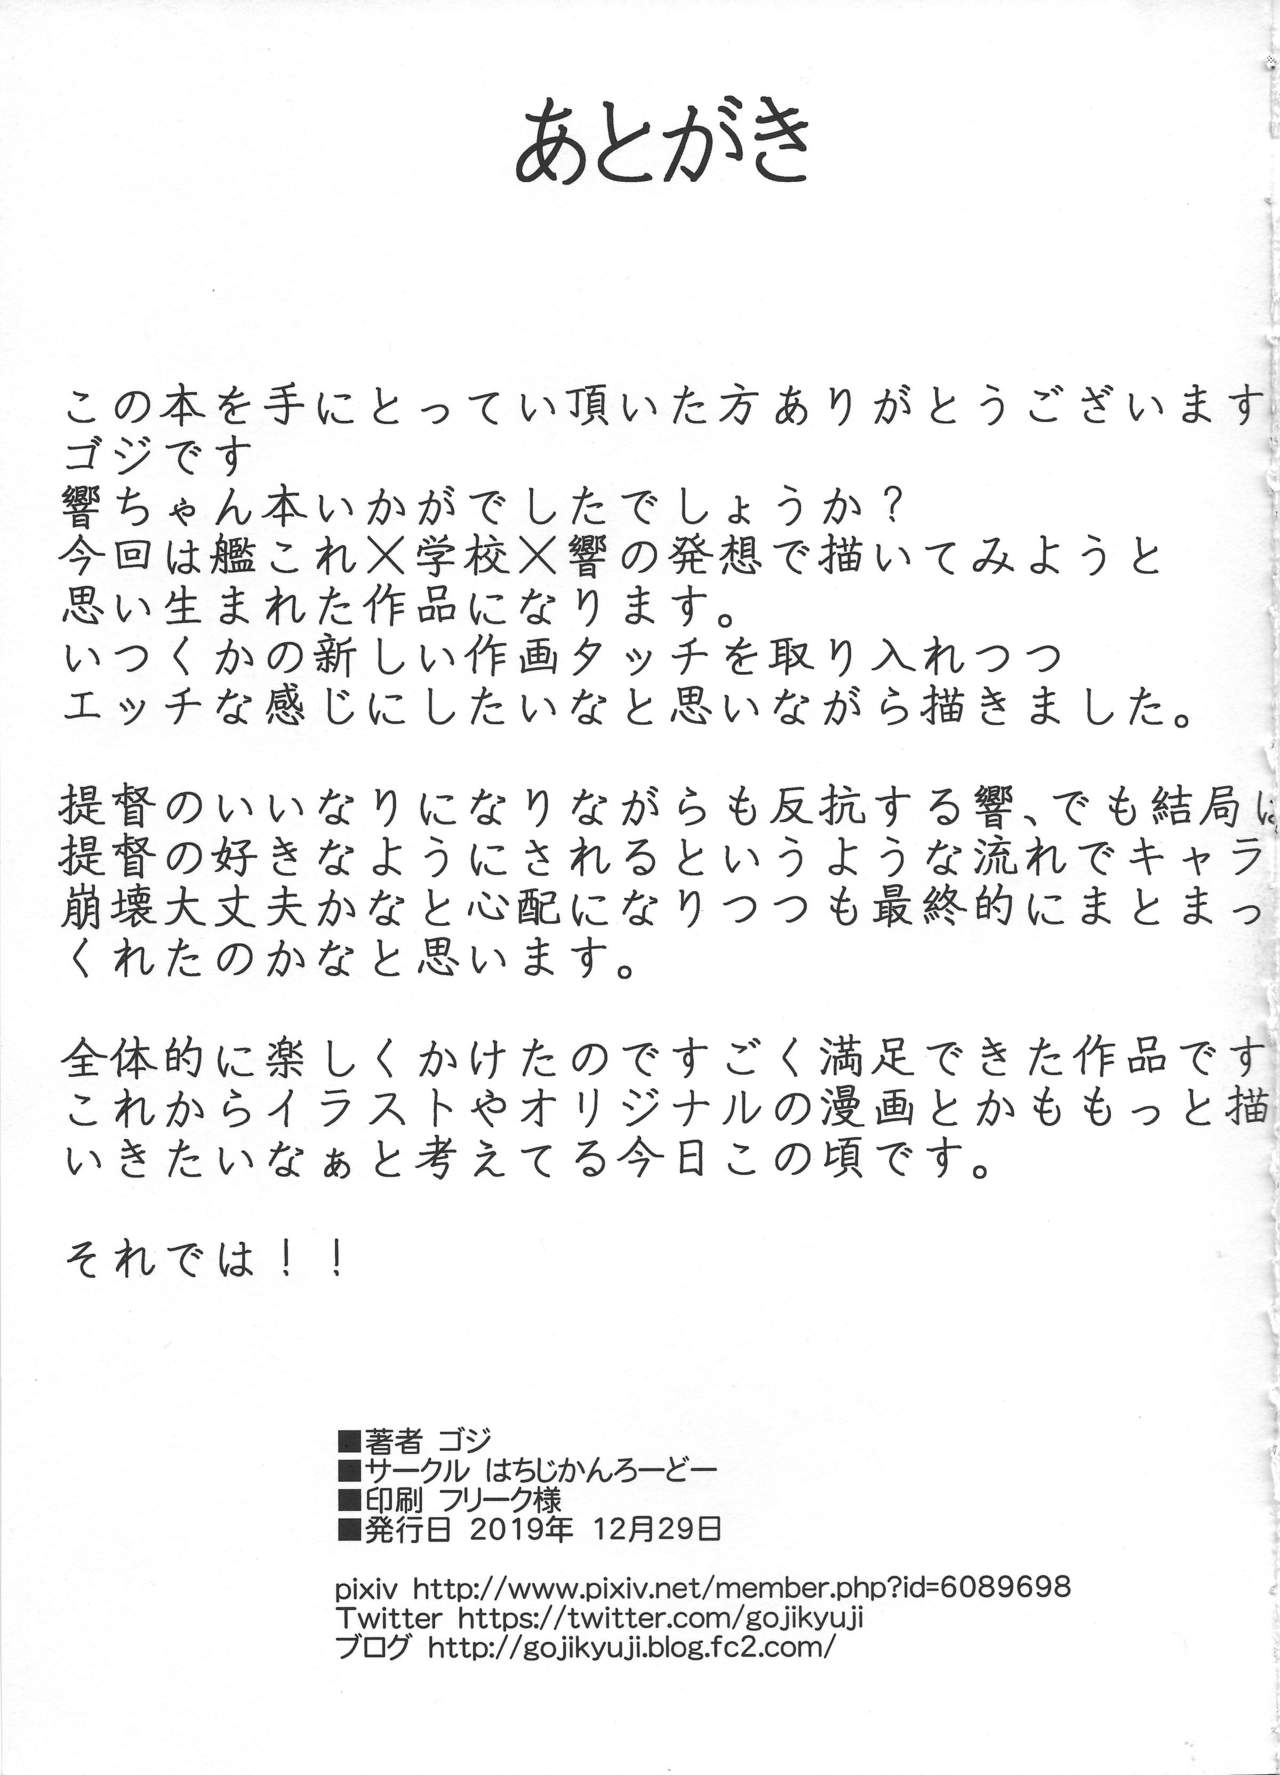 あとがき
この本を手にとってい頂いた方ありがとうございます
ゴジです
響ちゃん本いかがでしたでしょうか？
今回は艦これ×学校×響の発想で描いてみようと
思い生まれた作品になります。
いつくかの新しい作画タッチを取り入れつつ
エッチな感じにしたいなと思いながら描きました。
提督のいいなりになりながらも反抗する響、でも結局は
提督の好きなようにされるというような流れでキャラ
崩壊大丈夫かなと心配になりつつも最終的にまとまっ
くれたのかなと思います。
全体的に楽しくかけたのですごく満足できた作品です
これからイラストやオリジナルの漫画とかももっと描
いきたいなぁと考えてる今日この頃です。
それでは！！
■著者 ゴジ
■サークル はちじかんろーどー
■印刷 フリーク様
■発行日 2019年 12月29日
pixiv http://www.pixiv.net/member.php?id=6089698
Twitter https://twitter.com/gojikyuji
ブログ http://gojikyuji.blog.fc2.com/